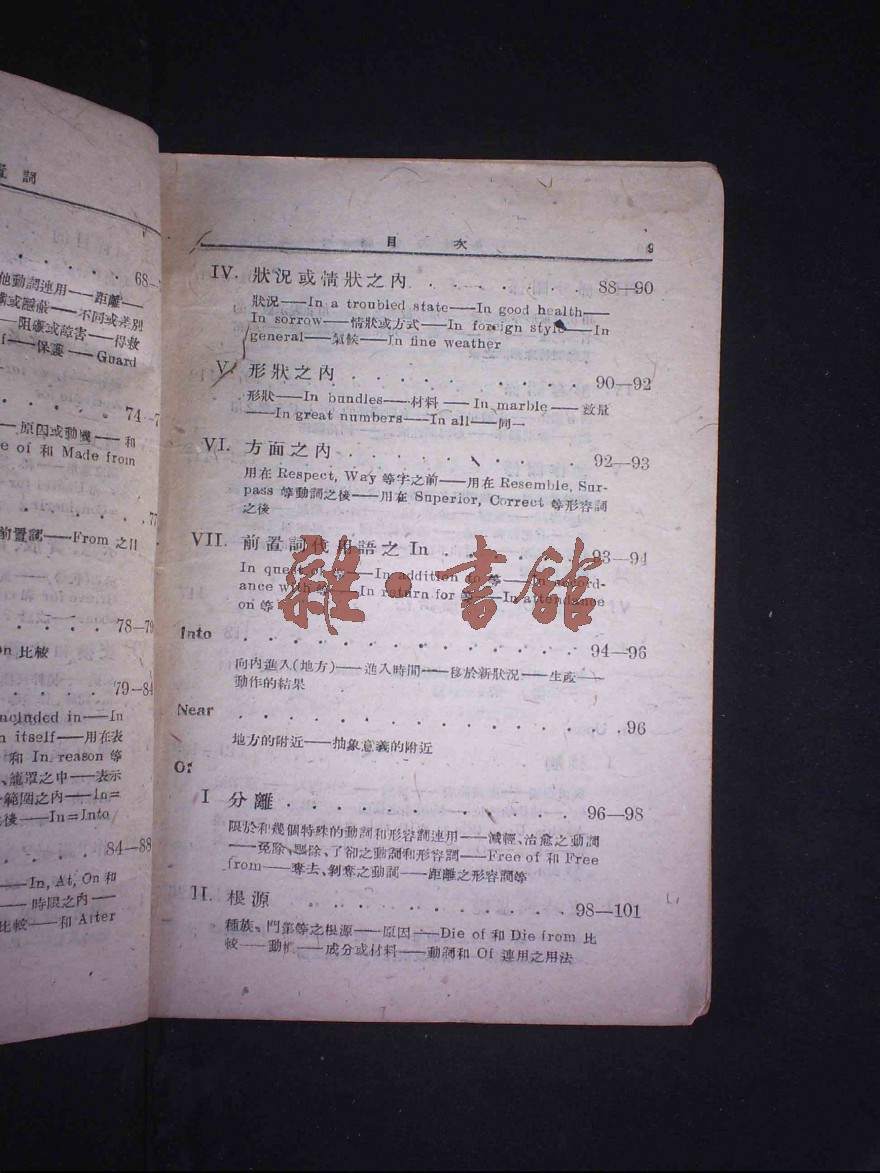 置詞
68—
他動詞連用——距離——
蔽或隱蔽——不同或差別
——阻礙或障害——得救
f——保護——Guard
74—7
——原因或動機——和
e of 和 Made from
77
前置詞——From 之目
78—79
on 比較
79—84
ncluded in——In
n itself——用在表
和 In reason 等
、籠罩之中——表示
範圍之內——In=
後——In=Into
84—88
——In, At, On 和
——時限之內——
比較——和 After
目 次 9
IV. 狀況或情狀之內 88—90
狀況——In a troubled state——In good health——
In sorrow——情狀或方式——In foreign style——In
general——氣候——In fine weather
V. 形狀之內 90—92
形狀——In bundles——材料——In marble——數量
——In great numbers——In all——同一
VI. 方面之內 92—93
用在 Respect, Way 等字之前——用在 Resemble, Sur-
pass 等動詞之後——用在 Superior, Correct 等形容詞
之後
VII. 前置詞代用語之 In 93—94
In quest of 等——In addition to 等——In accord-
ance with 等——In return for 等——In attendance
on 等
雜·書館
Into 94—96
向內進入(地方)——進入時間——移於新狀況——生產——
動作的結果
Near 96
地方的附近——抽象意義的附近
Of
I 分離 96—98
限於和幾個特殊的動詞和形容詞連用——減輕、治愈之動詞
——免除、驅除、了卻之動詞和形容詞——Free of 和 Free
from——奪去、剝奪之動詞——距離之形容詞等
II. 根源 98—101
種族、門第等之根源——原因——Die of 和 Die from 比
較——動機——成分或材料——動詞和 Of 連用之用法